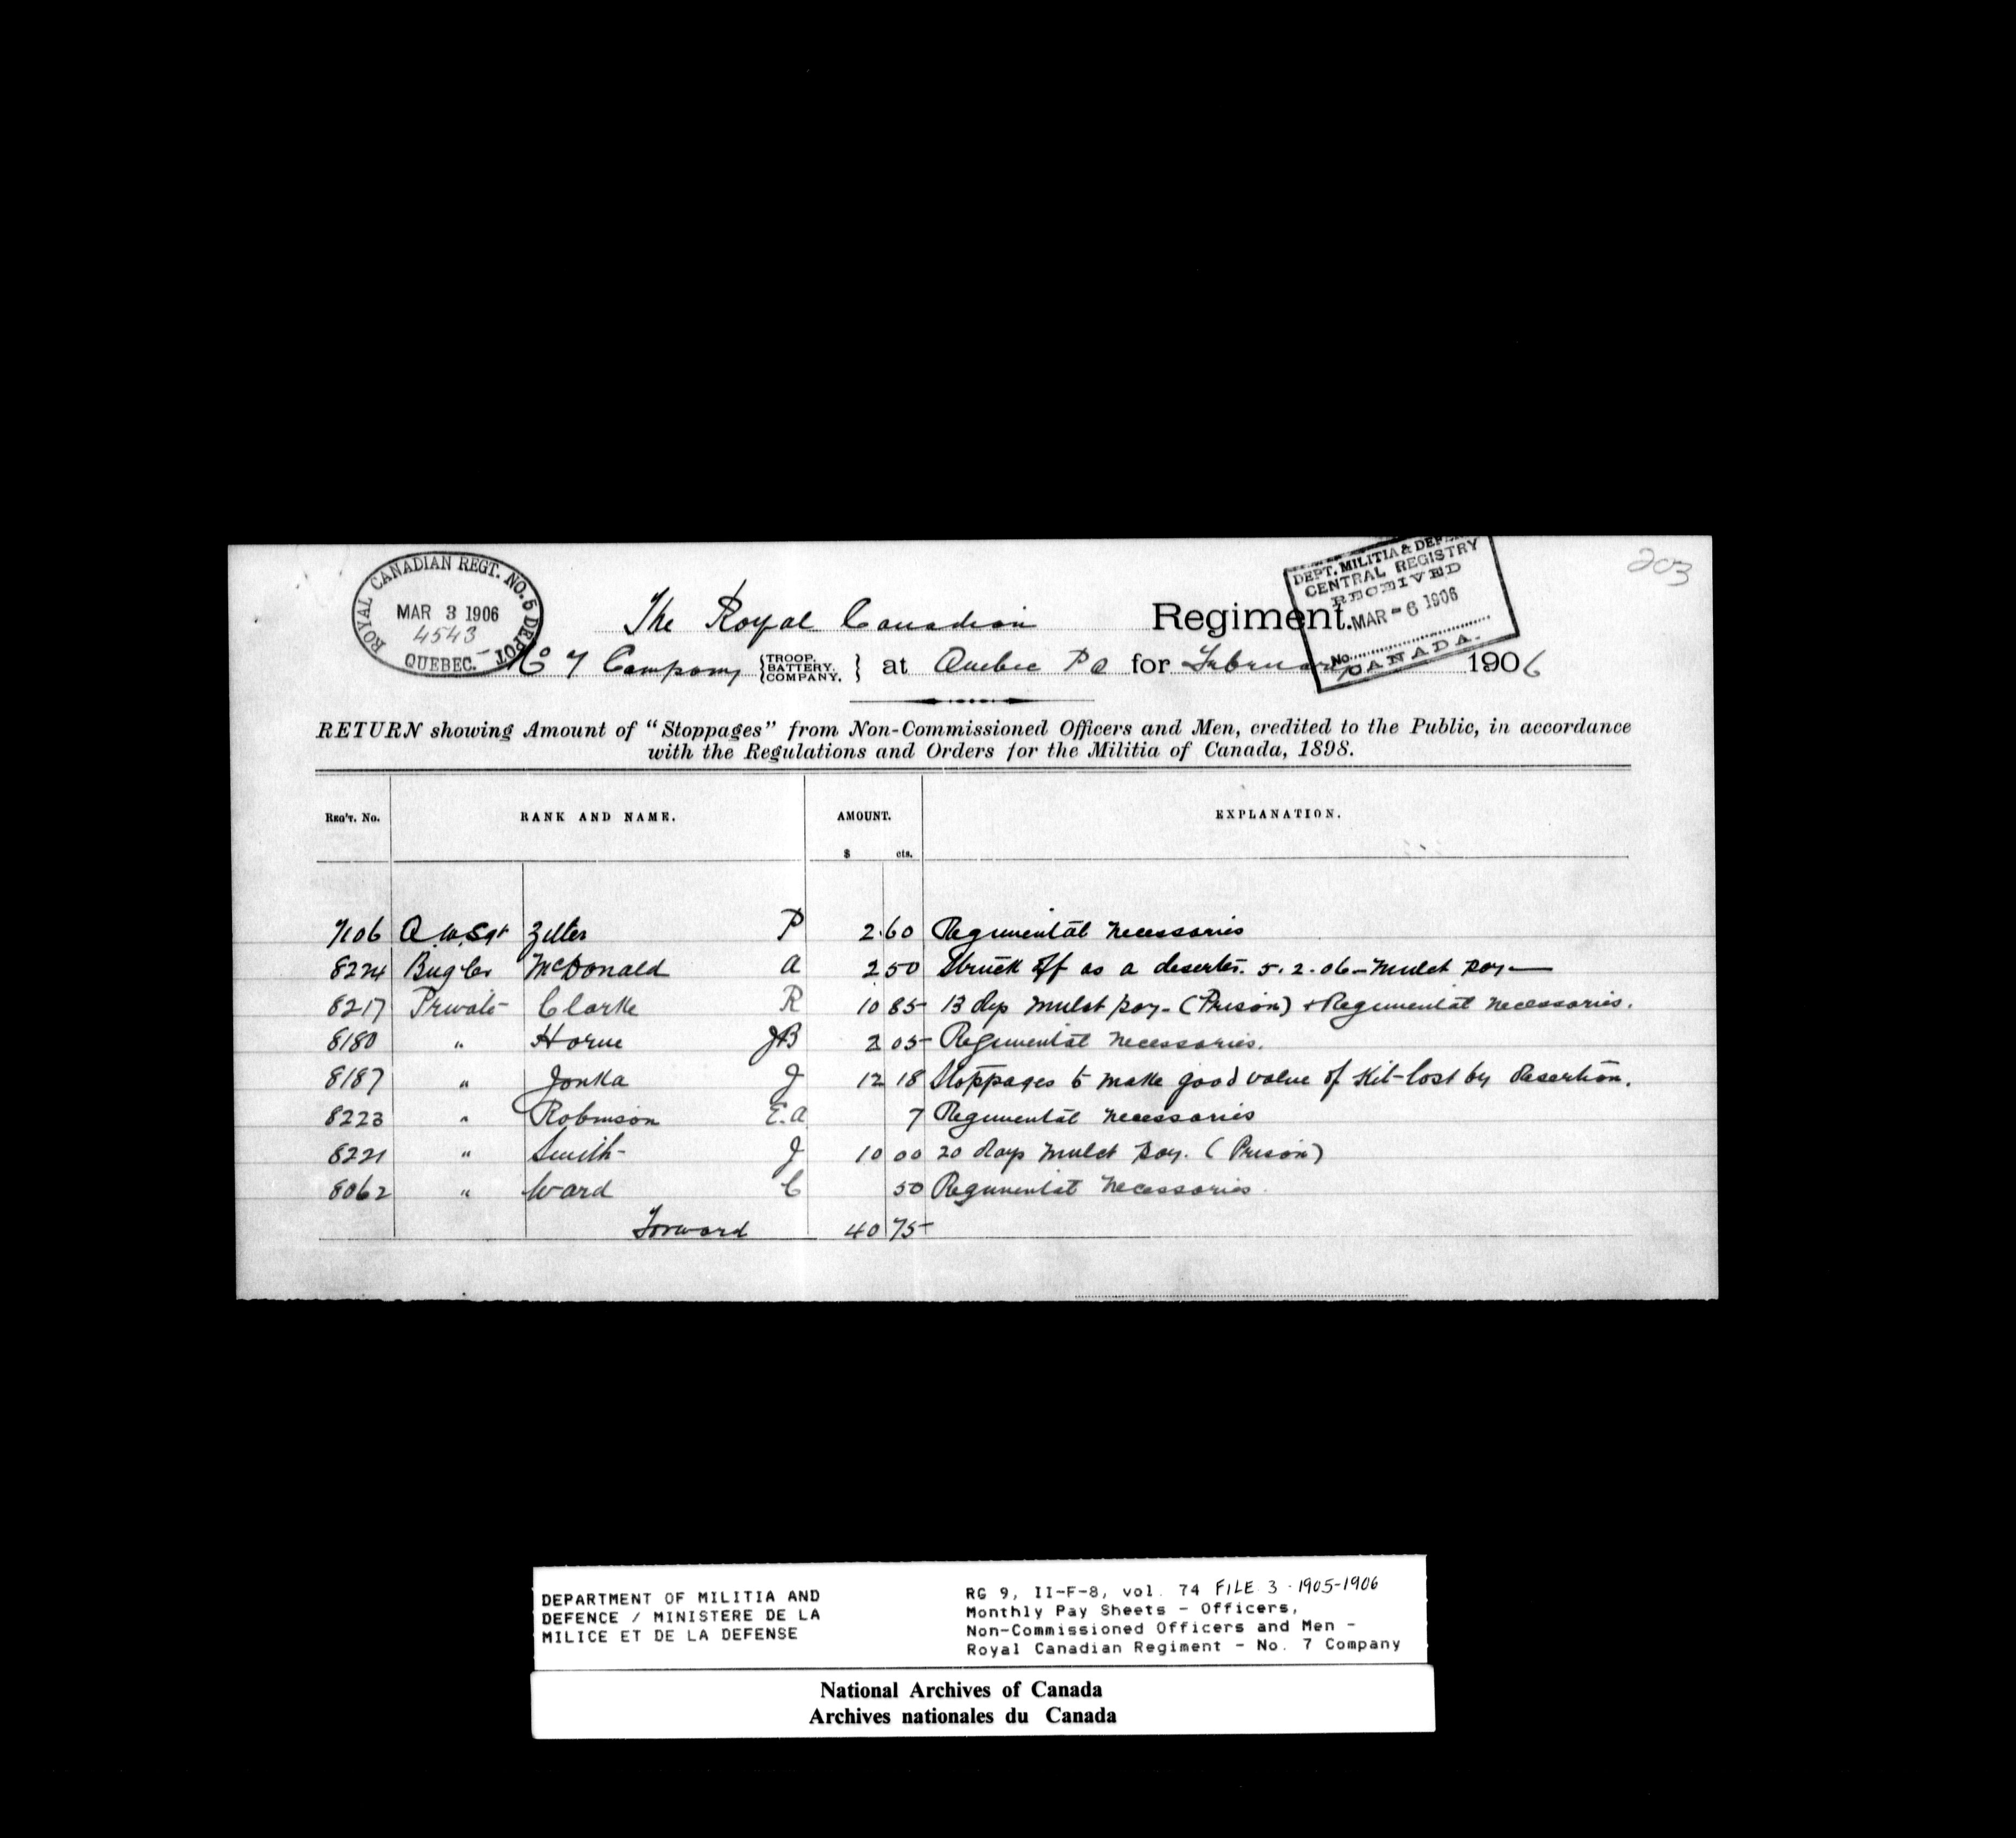 203
ROYAL CANADIAN REGT. NO. 5 DEPOT
MAR 3 1906
4543
QUEBEC.
DEPT. MILITIA & DEFEN
CENTRAL REGISTRY
RECEIVED
MAR - 6 1906
No.
CANADA.
The Royal Canadian Regiment.
No 7 Company {TROOP. BATTERY. COMPANY.} at Quebec P Q for February 1906
RETURN showing Amount of "Stoppages" from Non-Commissioned Officers and Men, credited to the Public, in accordance
with the Regulations and Orders for the Militia of Canada, 1898.
REG'T. No. RANK AND NAME. AMOUNT. EXPLANATION.
$ cts.
7106 Q.M.Sgt Zeller P 2.60 Regimental Necessaries
8224 Bugler McDonald A 2 50 Struck off as a deserter. 5.2.06 - Mulct pay
8217 Private Clarke R 10 85 13 dys Mulct pay - (Prison) + Regimental Necessaries.
8180 " Horne JB 2 05 Regimental Necessaries.
8187 " Jonka J 12 18 Stoppages to make good value of Kit lost by desertion.
8223 " Robinson E.A 7 Regimental Necessaries
8221 " Smith J 10 00 20 days Mulct pay. (Prison)
8062 " Ward C 50 Regimental Necessaries
Forward 40 75
DEPARTMENT OF MILITIA AND
DEFENCE / MINISTERE DE LA
MILICE ET DE LA DEFENSE
RG 9, II-F-8, vol. 74 FILE 3 · 1905-1906
Monthly Pay Sheets - Officers,
Non-Commissioned Officers and Men -
Royal Canadian Regiment - No. 7 Company
National Archives of Canada
Archives nationales du Canada